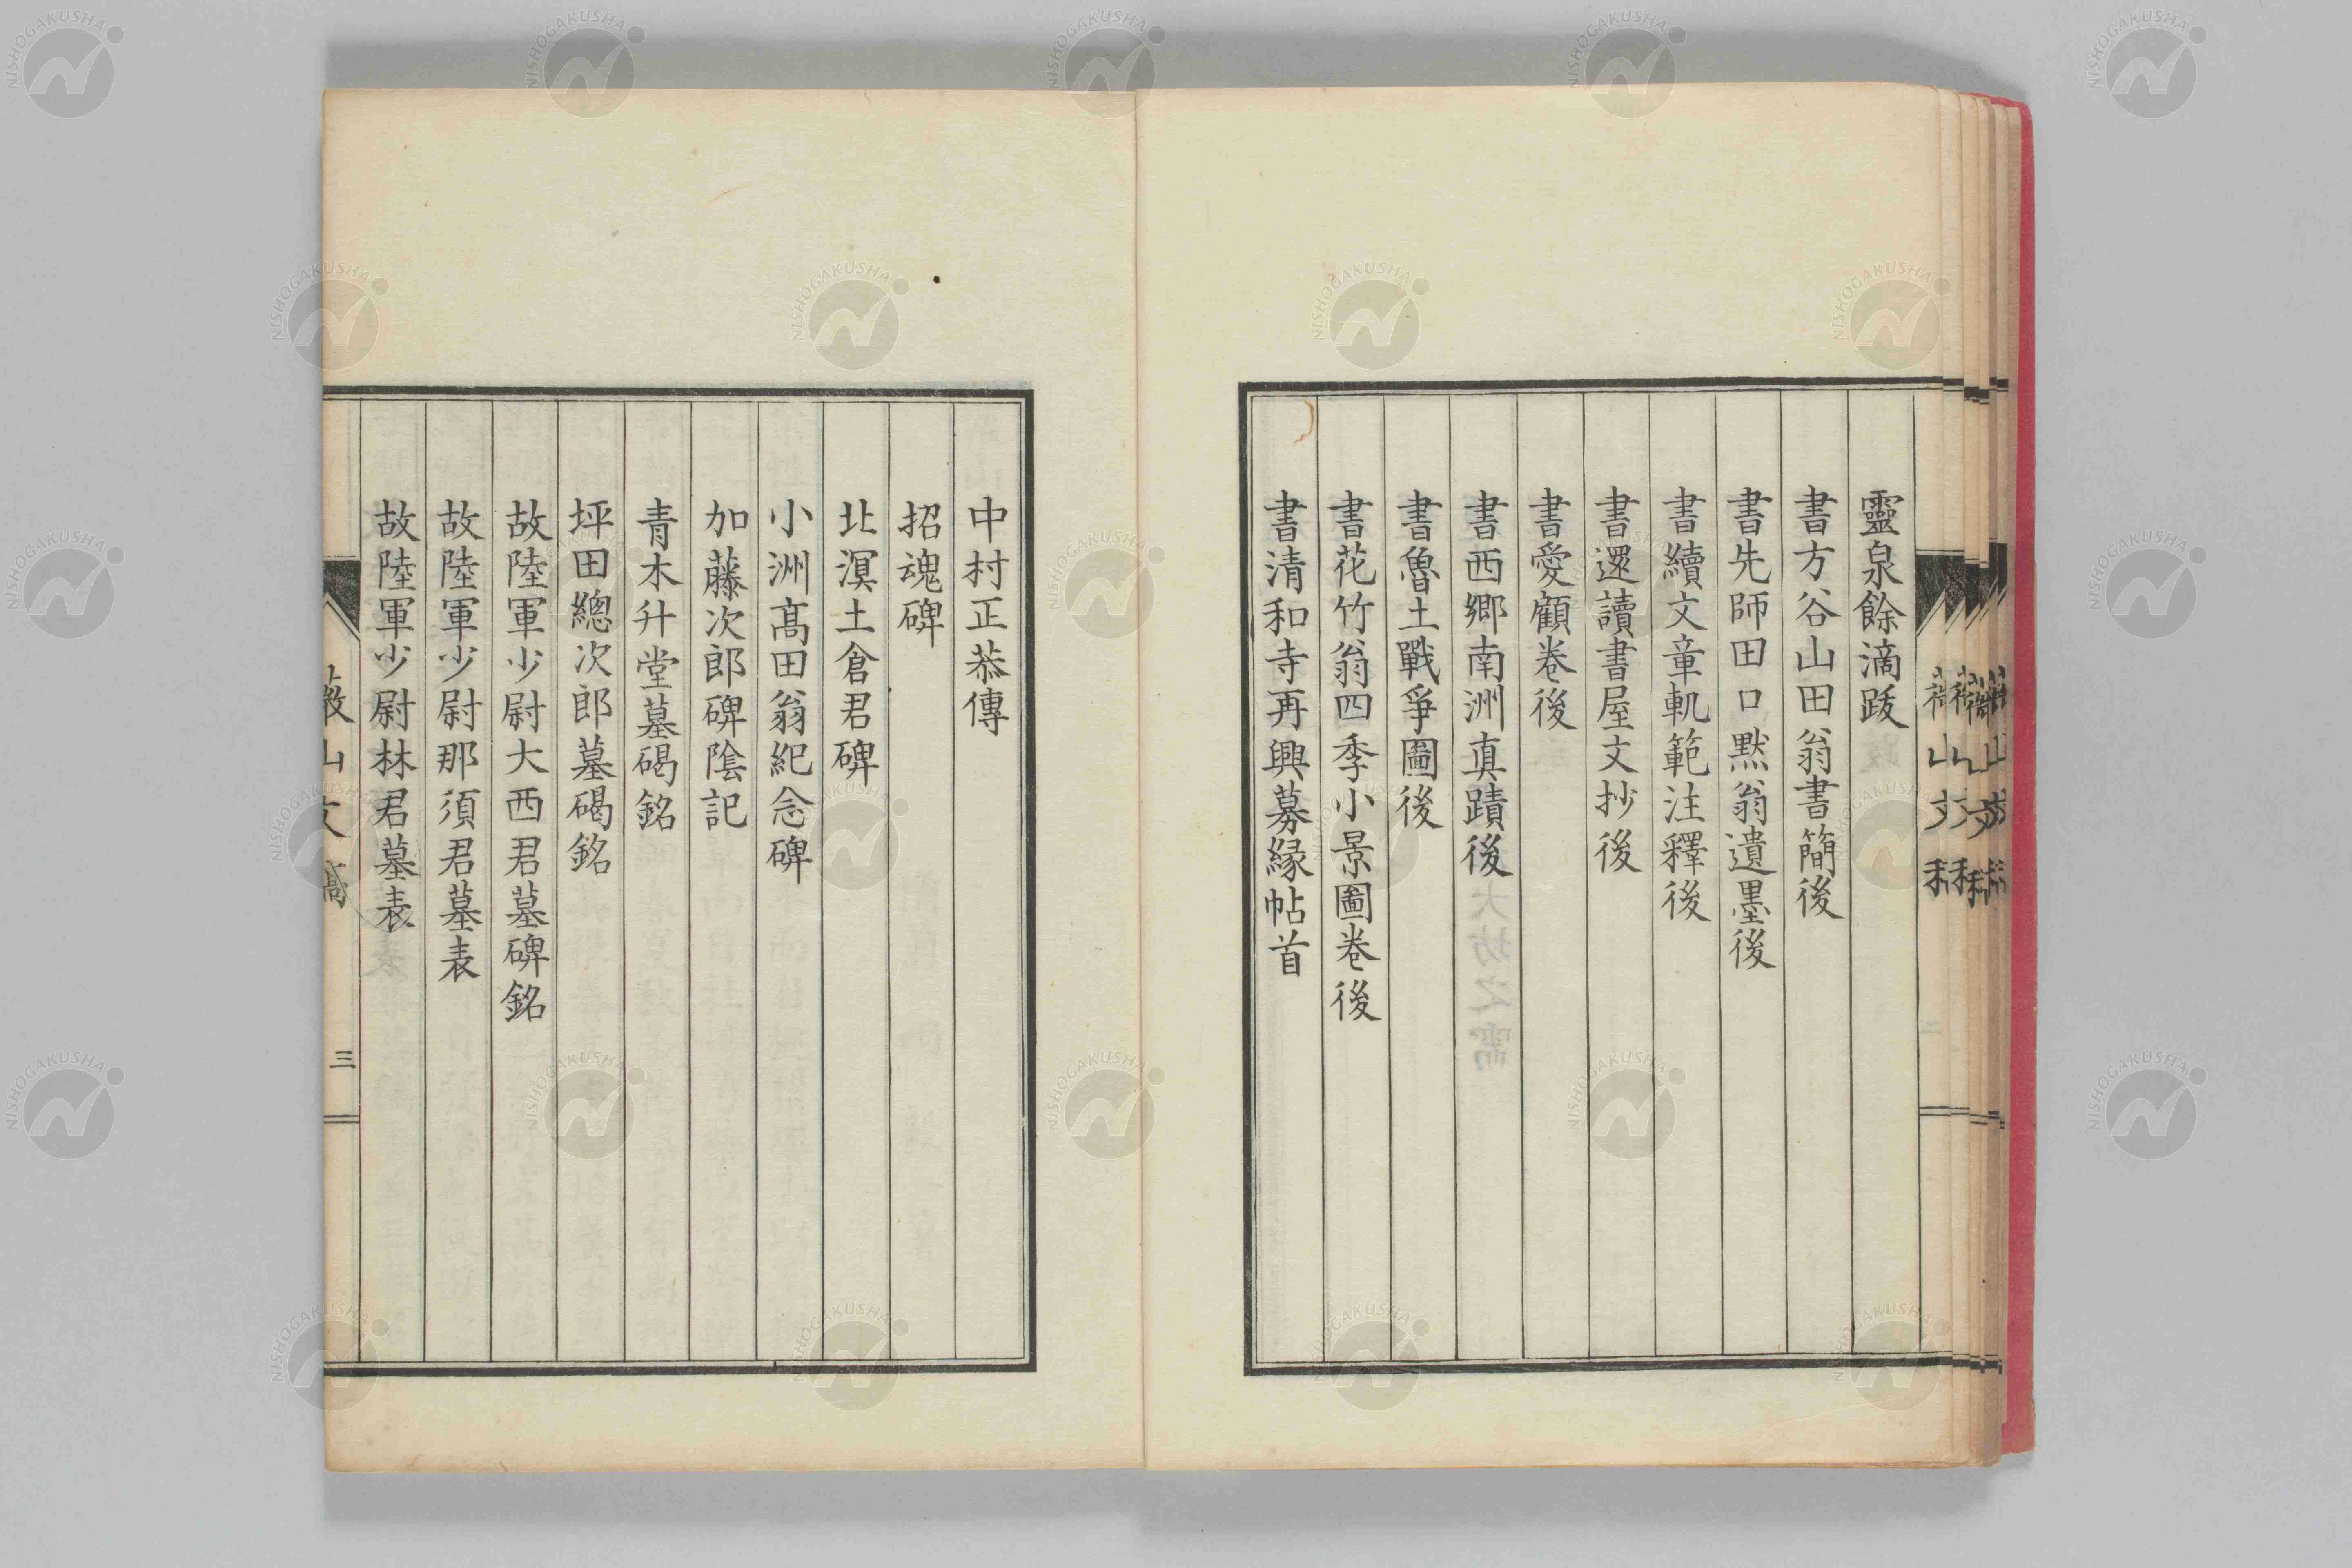 靈泉餘滴跋
書方谷山田翁書簡後
書先師田口黙翁遺墨後
書續文章軌範注釋後
書還讀書屋文抄後
書愛顧卷後
書西鄉南洲真蹟後
書魯土戰爭圖後
書花竹翁四季小景圖卷後
書清和寺再興募緣帖首
中村正恭傳
招魂碑
北溟土倉君碑
小洲高田翁紀念碑
加藤次郎碑陰記
青木升堂墓碣銘
坪田總次郎墓碣銘
故陸軍少尉大西君墓碑銘
故陸軍少尉那須君墓表
故陸軍少尉林君墓表
山文稿
三
NISHOGAKUSHA